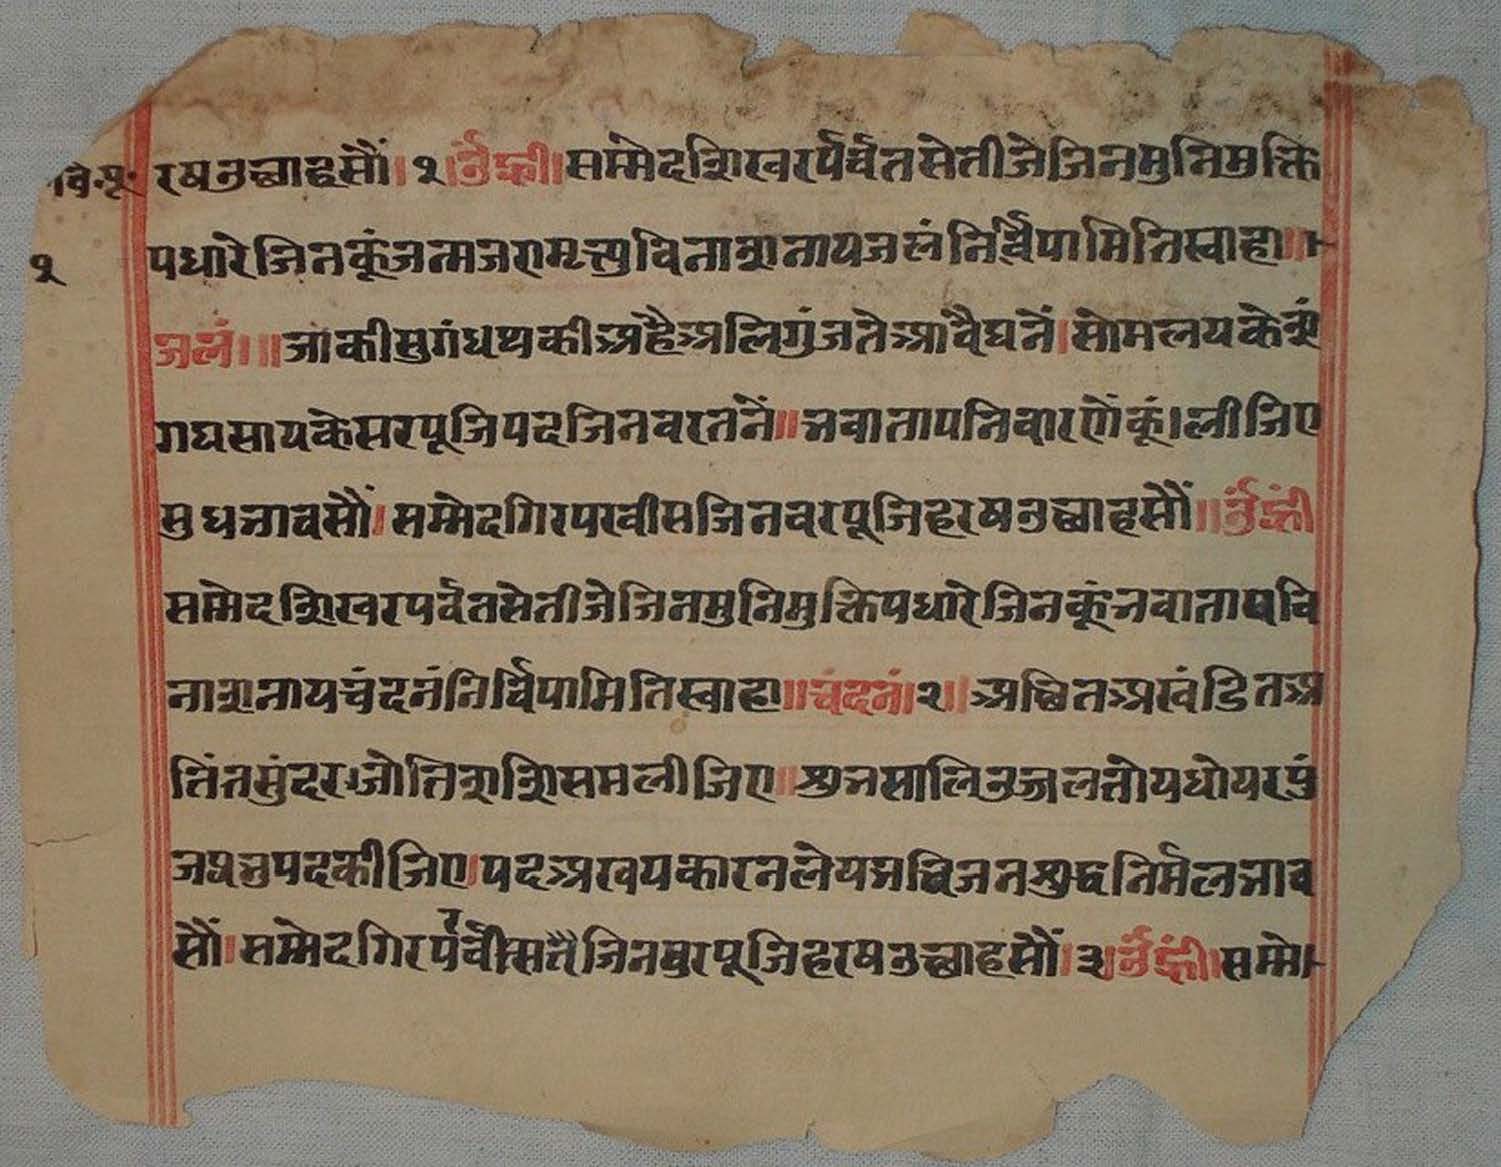 वि॰पू॰ रषउछाहसौं। १। ॐह्री। सम्मेदशिखरपर्वतसेतीजेजिनमुनिमुक्ति
१ पधारेजिनकूंजन्मजरामृत्युविनाशनायजलंनिर्वपामितिस्वाहा॥
जलं। ॥ जाकीसुगंधथकीअहैअलिगुंजतेआवैघनें। सोमलयकेशं
गघसायकेसरपूजिपदजिनवरतनें॥ भवातापनिवारणेंकूं। लीजिए
सुधभावसौं। सम्मेदगिरपरवीसजिनवरपूजिहरषउछाहसौं॥ ॐह्रीं
सम्मेदशिखरपर्वतसेतीजेजिनमुनिमुक्तिपधारेजिनकूंभवातापवि
नाशनायचंदनंनिर्वपामितिस्वाहा॥ चंदनं। २। अछितअखंडितअ
तिंतसुंदरजोतिशशिसमलीजिए॥ शुभसालिउजलतोयधोयरपुं
जप्रभुपदकीजिए। पदअखयकारनलेयभविजनशुद्धनिर्मलभाव
सौं। सम्मेदगिरपर्वीसतैजिनवरपूजिहरषउछाहसौं। ३। ॐह्रीं। सम्मे